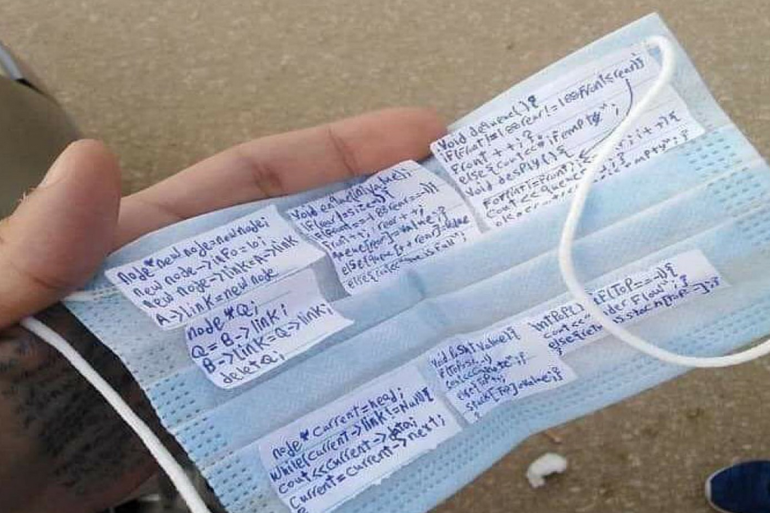 node*new node=new node;
new node->info=10;
new node->link=A->link
A->link=new node
node *Q;
Q=B->link;
B->link=Q->link;
delete Q;
Void enque(int value);
if(rear!=size
if(front==-1&&rear==-1){
front++; rear++;
queue[rear]=value;}
else{queue[++rear]=value
else{cout<<"
Void dequeue(){
if(front!=-1&&rear!=-1&&front<rear){
front++;}
else{cout<<"if empty";
Void desply(){
for(int i=front; i++){
cout<<queue empty";}
node *Current=head;
while(current->link!=Null){
cout<<current->data;
Current=Current->next;
Void Push(int value){
if(Top>
else{Top++;
stack[Top]=value;}
int PoP(){ if(ToP==-1){
cout<<"under Flow";}
else{return stack[Top--];}